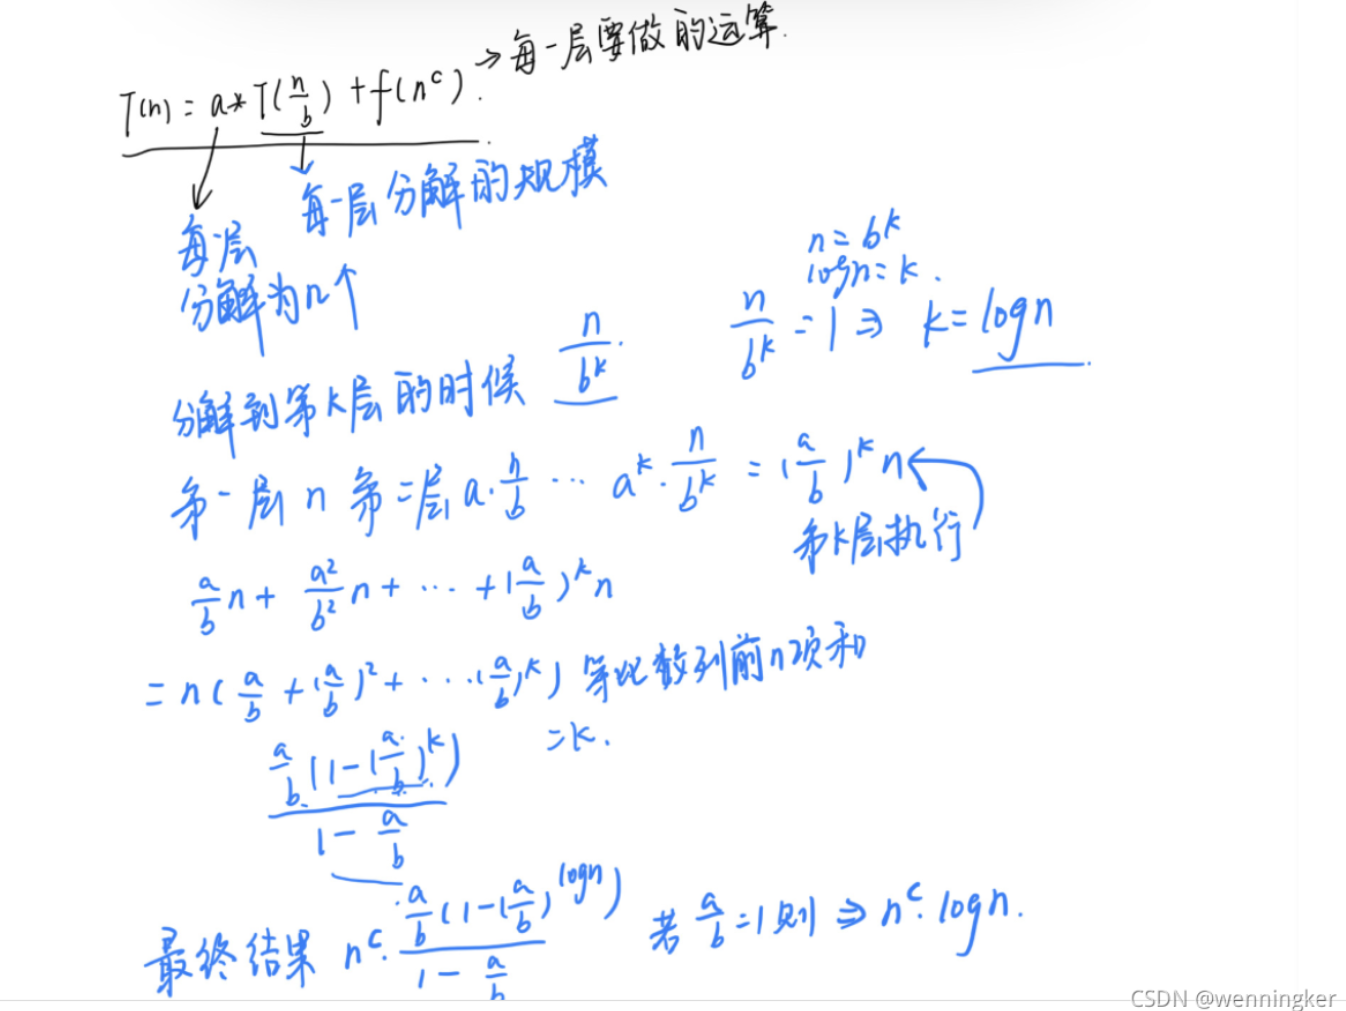 T(n) = a * T(n/b) + f(n^c). → 每一层要做的运算.
每一层分解的规模
每层
分解为n个
n = b^k
logn = k.
分解到第k层的时候 n/b^k. n/b^k = 1 ⇒ k = logn
第一层 n 第二层 a·n/b ... a^k · n/b^k = (a/b)^k n
第k层执行
a/b n + a²/b² n + ... + (a/b)^k n
= n( a/b + (a/b)² + ... (a/b)^k ) 等比数列前n项和
= k.
a/b (1 - (a/b)^k) / 1 - a/b
最终结果 n^c · a/b (1 - (a/b)^logn) / 1 - a/b 若 a/b = 1 则 ⇒ n^c · logn.
CSDN @wenningker